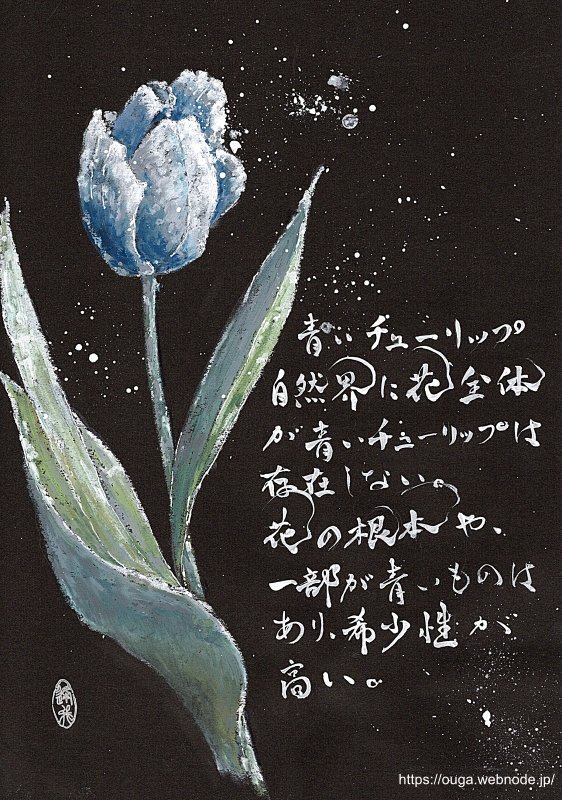 青いチューリップ
自然界に花全体
が青いチューリップは
存在しない。
花の根本や、
一部が青いものは
あり、希少性が
高い。
https://ouga.webnode.jp/